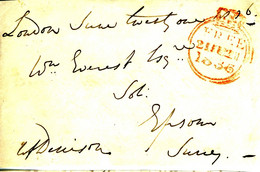 London June twenty one 1836.
Wm Everest Esqre
Sol:
Epsom
Surrey
FREE
21JE21
1836